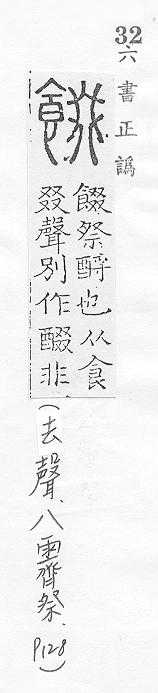 32
六書正譌
餟
餟祭酹也从食
叕聲別作醊非
(去聲、八霽祭、P128)